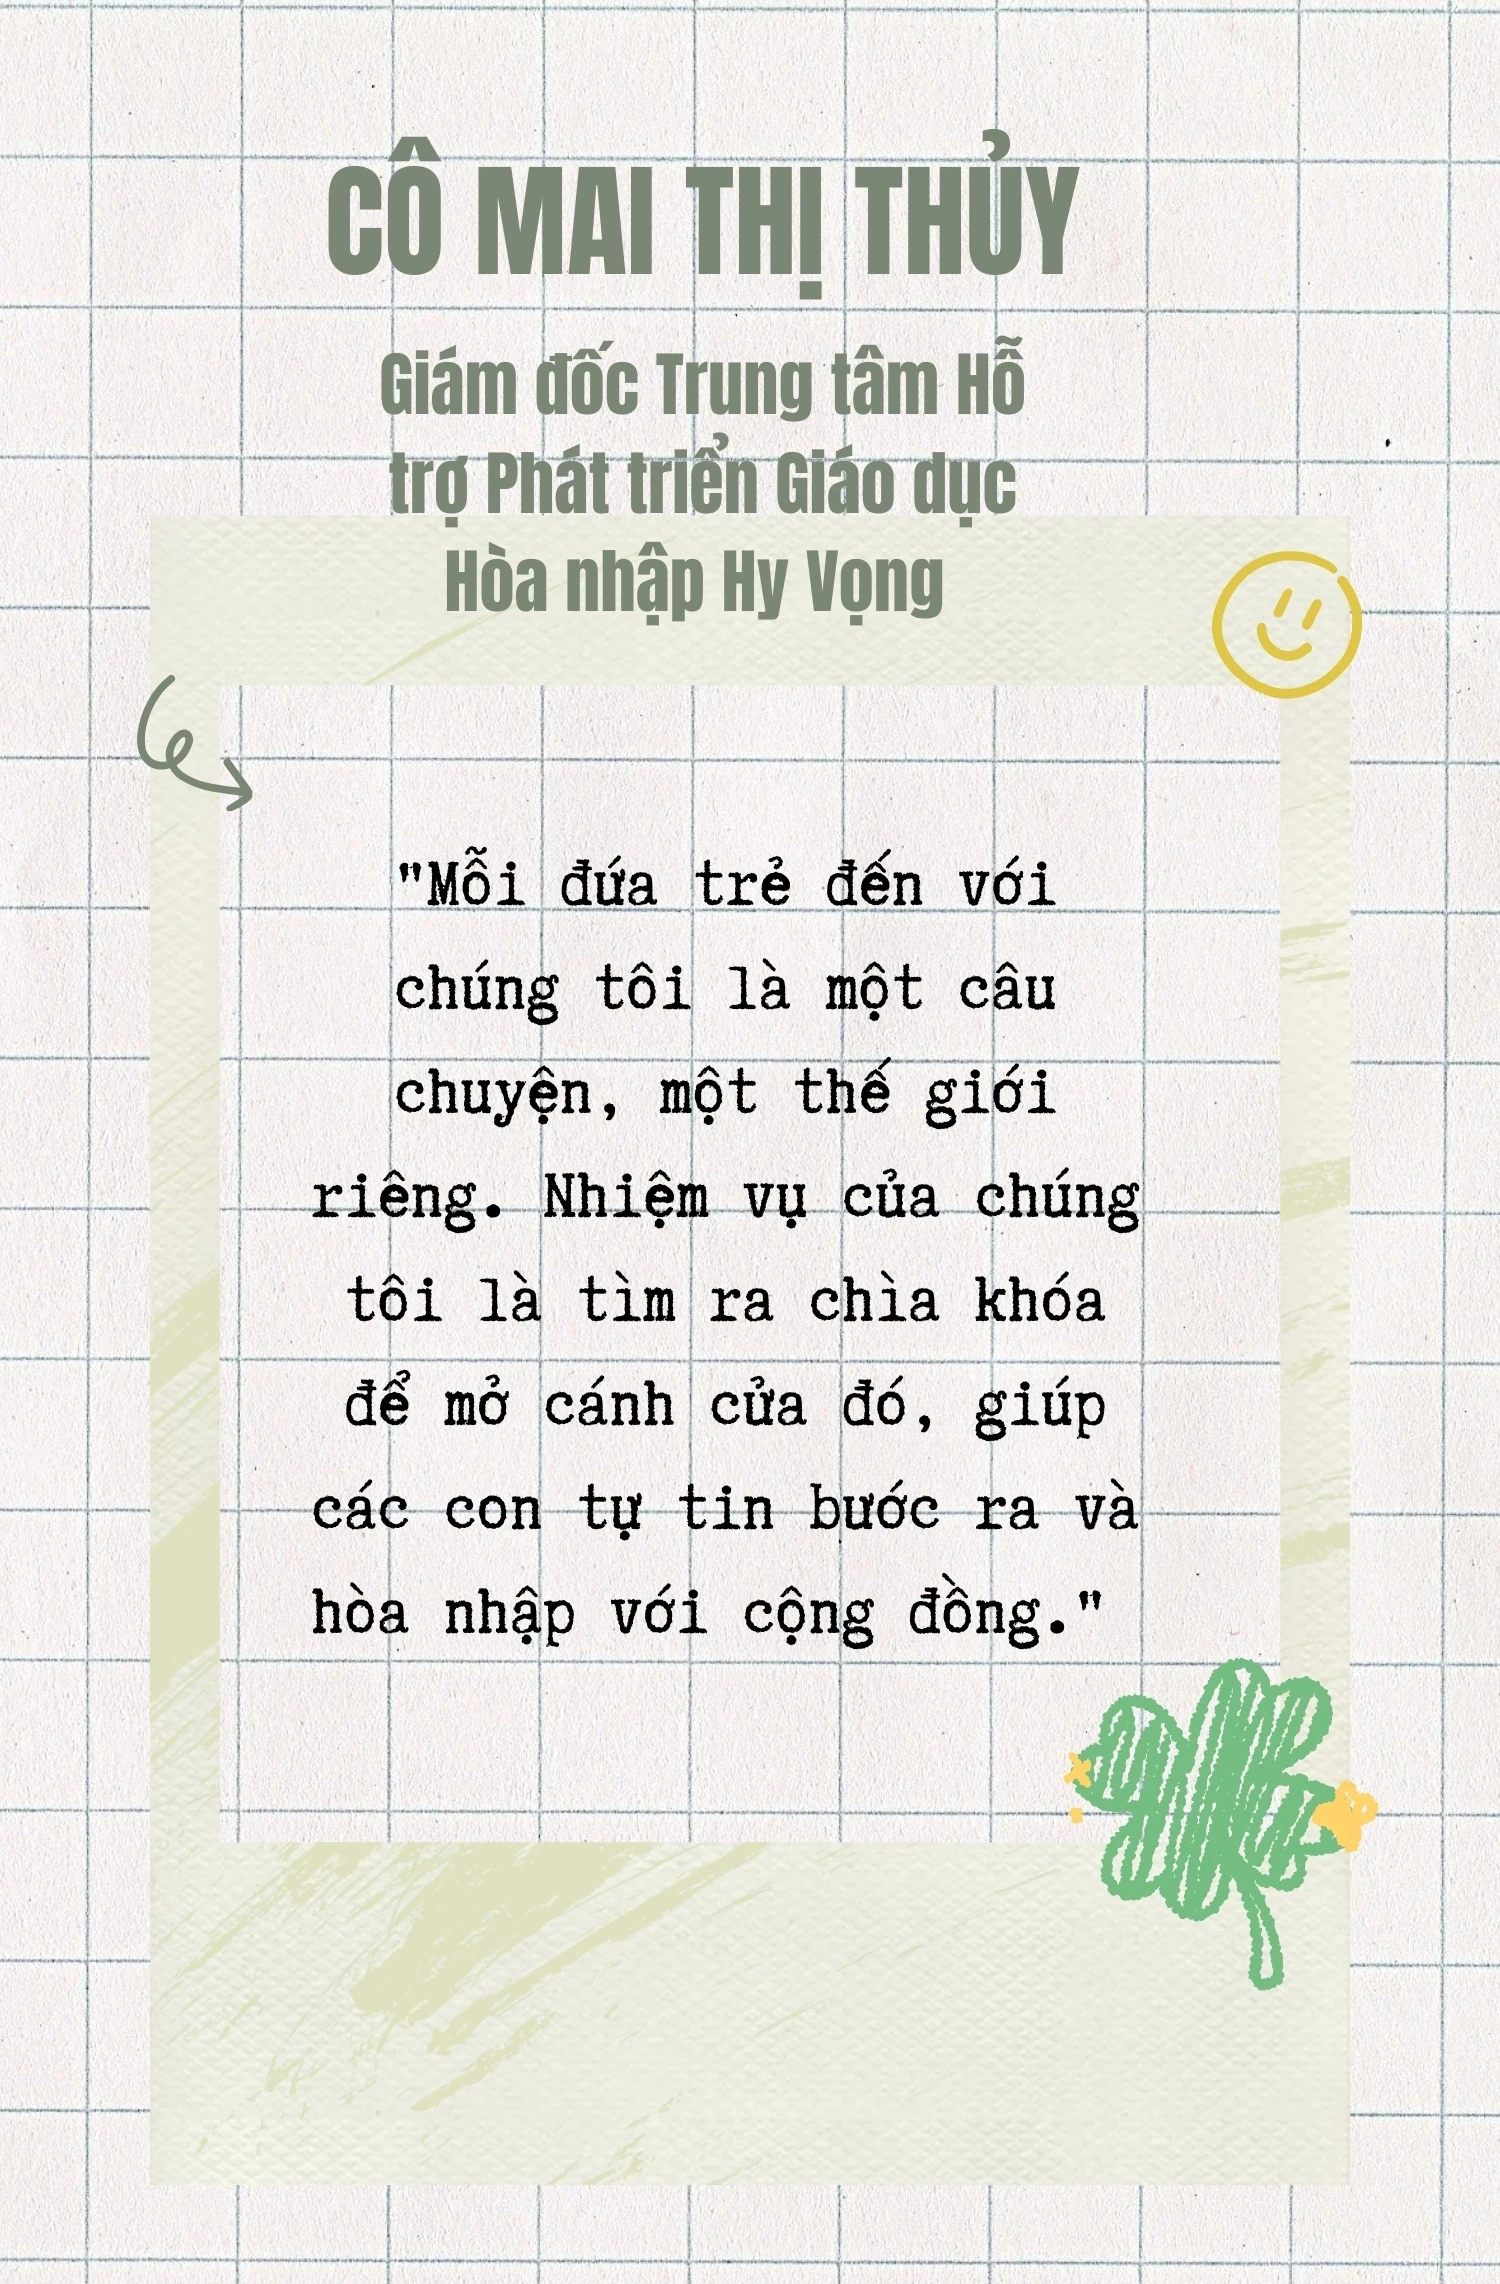 CÔ MAI THỊ THỦY
Giám đốc Trung tâm Hỗ
trợ Phát triển Giáo dục
Hòa nhập Hy Vọng
"Mỗi đứa trẻ đến với
chúng tôi là một câu
chuyện, một thế giới
riêng. Nhiệm vụ của chúng
tôi là tìm ra chìa khóa
để mở cánh cửa đó, giúp
các con tự tin bước ra và
hòa nhập với cộng đồng."